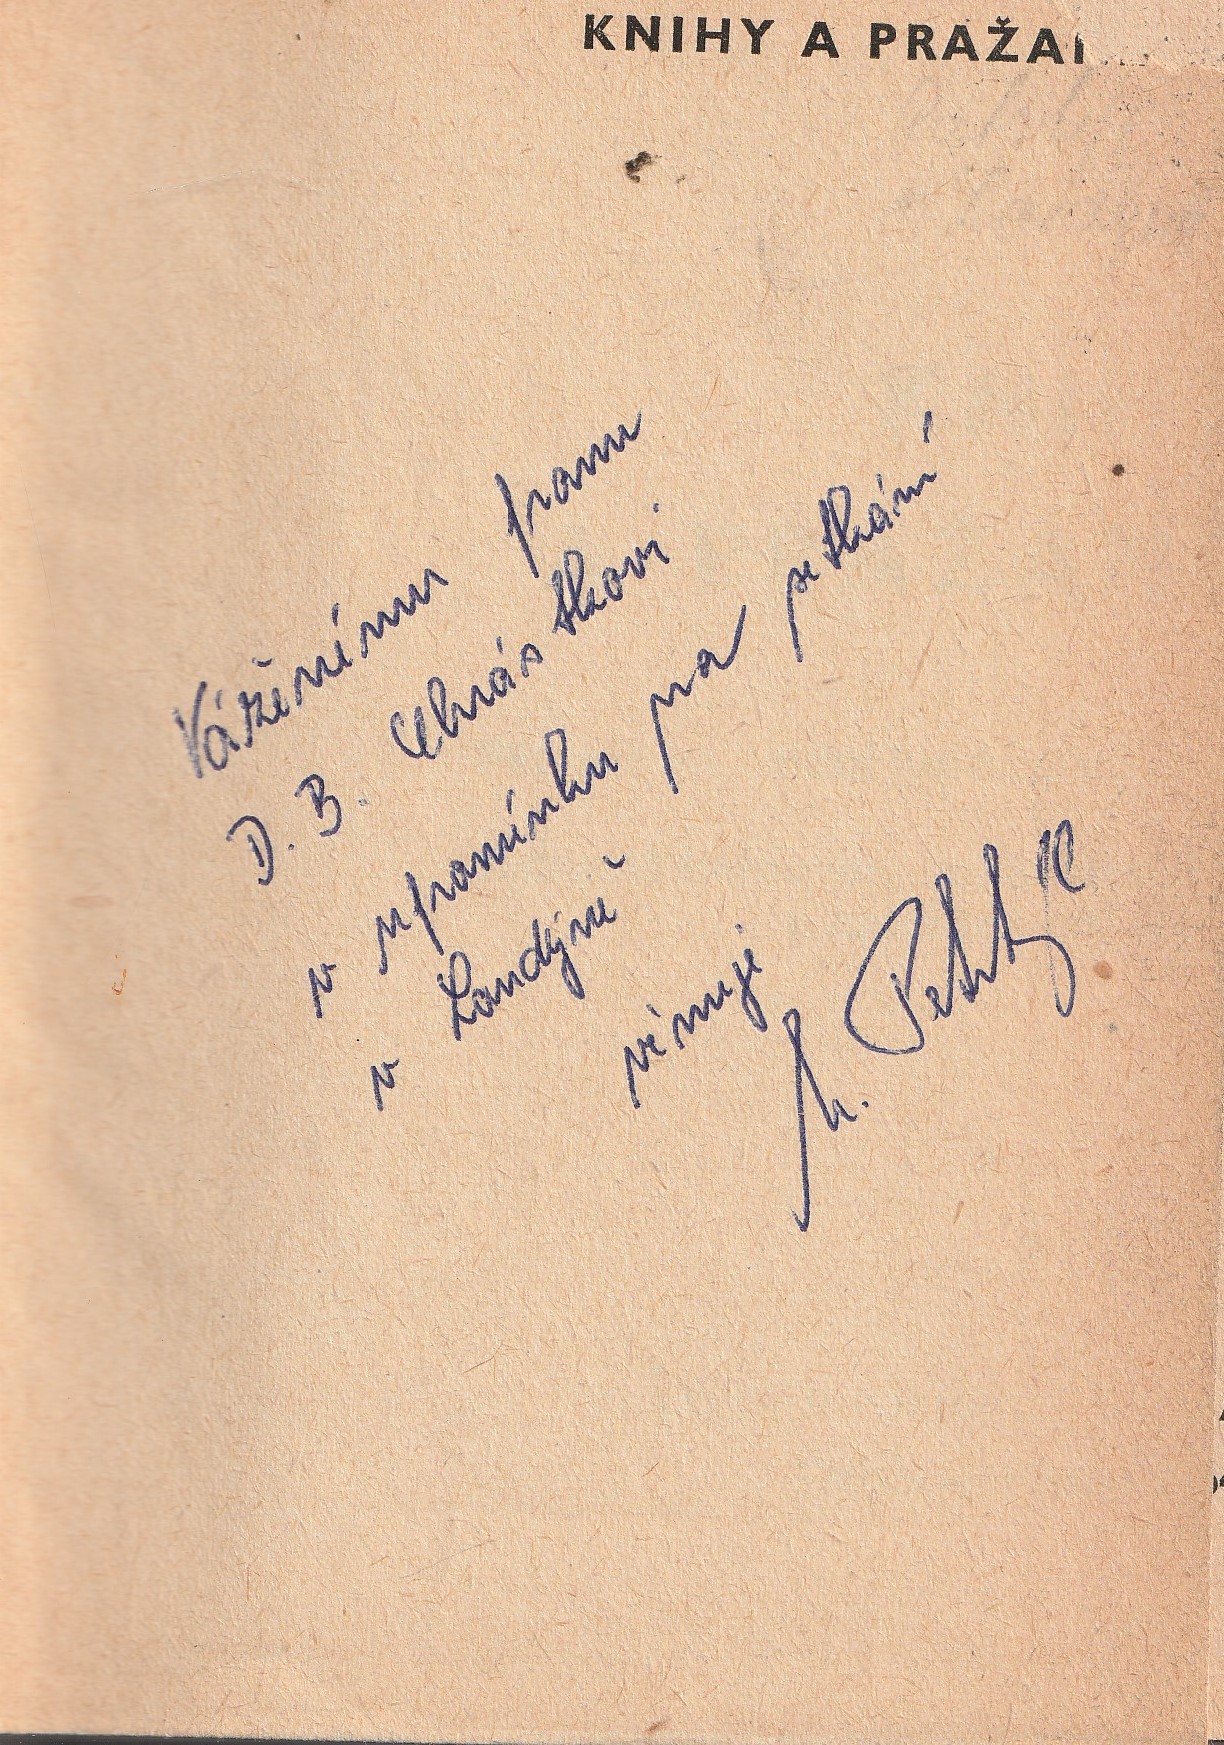 KNIHY A PRAŽA
Váženému panu
D. B. Chrástkovi
v upomínku na setkání
v Londýně
věnuje
M. Petrtýl